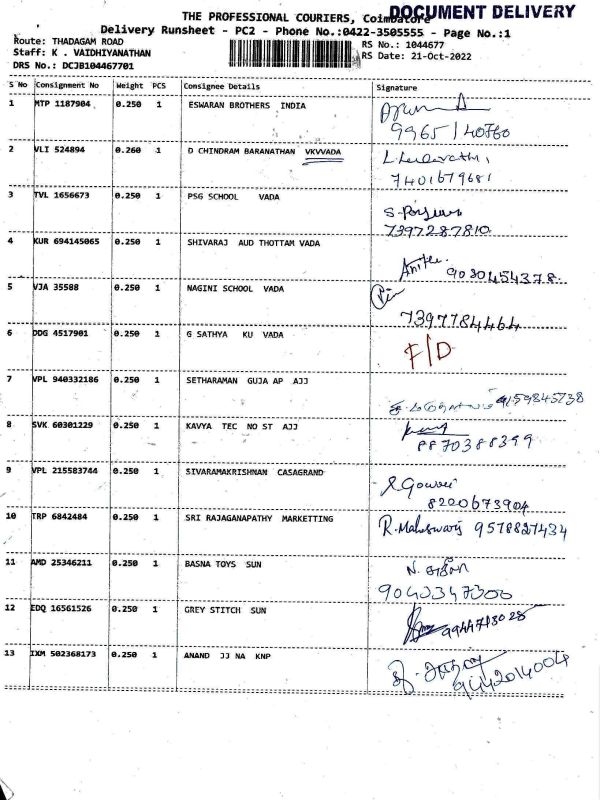 DOCUMENT DELIVERY
THE PROFESSIONAL COURIERS, Coimbatore
Delivery Runsheet - PC2 - Phone No.:0422-3505555 - Page No.:1
Route: THADAGAM ROAD
RS No.: 1044677
Staff: K . VAIDHIYANATHAN
RS Date: 21-Oct-2022
DRS No.: DCJB104467701
S No Consignment No Weight PCS Consignee Details Signature
1 MTP 1187904 0.250 1 ESWARAN BROTHERS INDIA
9965140760
2 VLI 524894 0.260 1 D CHINDRAM BARANATHAN VKVVADA
7401679681
3 TVL 1656673 0.250 1 PSG SCHOOL VADA
7397287810
4 KUR 694145065 0.250 1 SHIVARAJ AUD THOTTAM VADA
9080454378
5 VJA 35588 0.250 1 NAGINI SCHOOL VADA
7397784464
6 DDG 4517901 0.250 1 G SATHYA KU VADA
F/D
7 VPL 940332186 0.250 1 SETHARAMAN GUJA AP AJJ
9159845738
8 SVK 60301229 0.250 1 KAVYA TEC NO ST AJJ
8870388399
9 VPL 215583744 0.250 1 SIVARAMAKRISHNAN CASAGRAND
S Gowri
8220673904
10 TRP 6842484 0.250 1 SRI RAJAGANAPATHY MARKETTING
R. Maheswari 9578827434
11 AMD 25346211 0.250 1 BASNA TOYS SUN
9040347300
12 EDQ 16561526 0.250 1 GREY STITCH SUN
9944713028
13 IXM 502368173 0.250 1 ANAND JJ NA KNP
9442014004